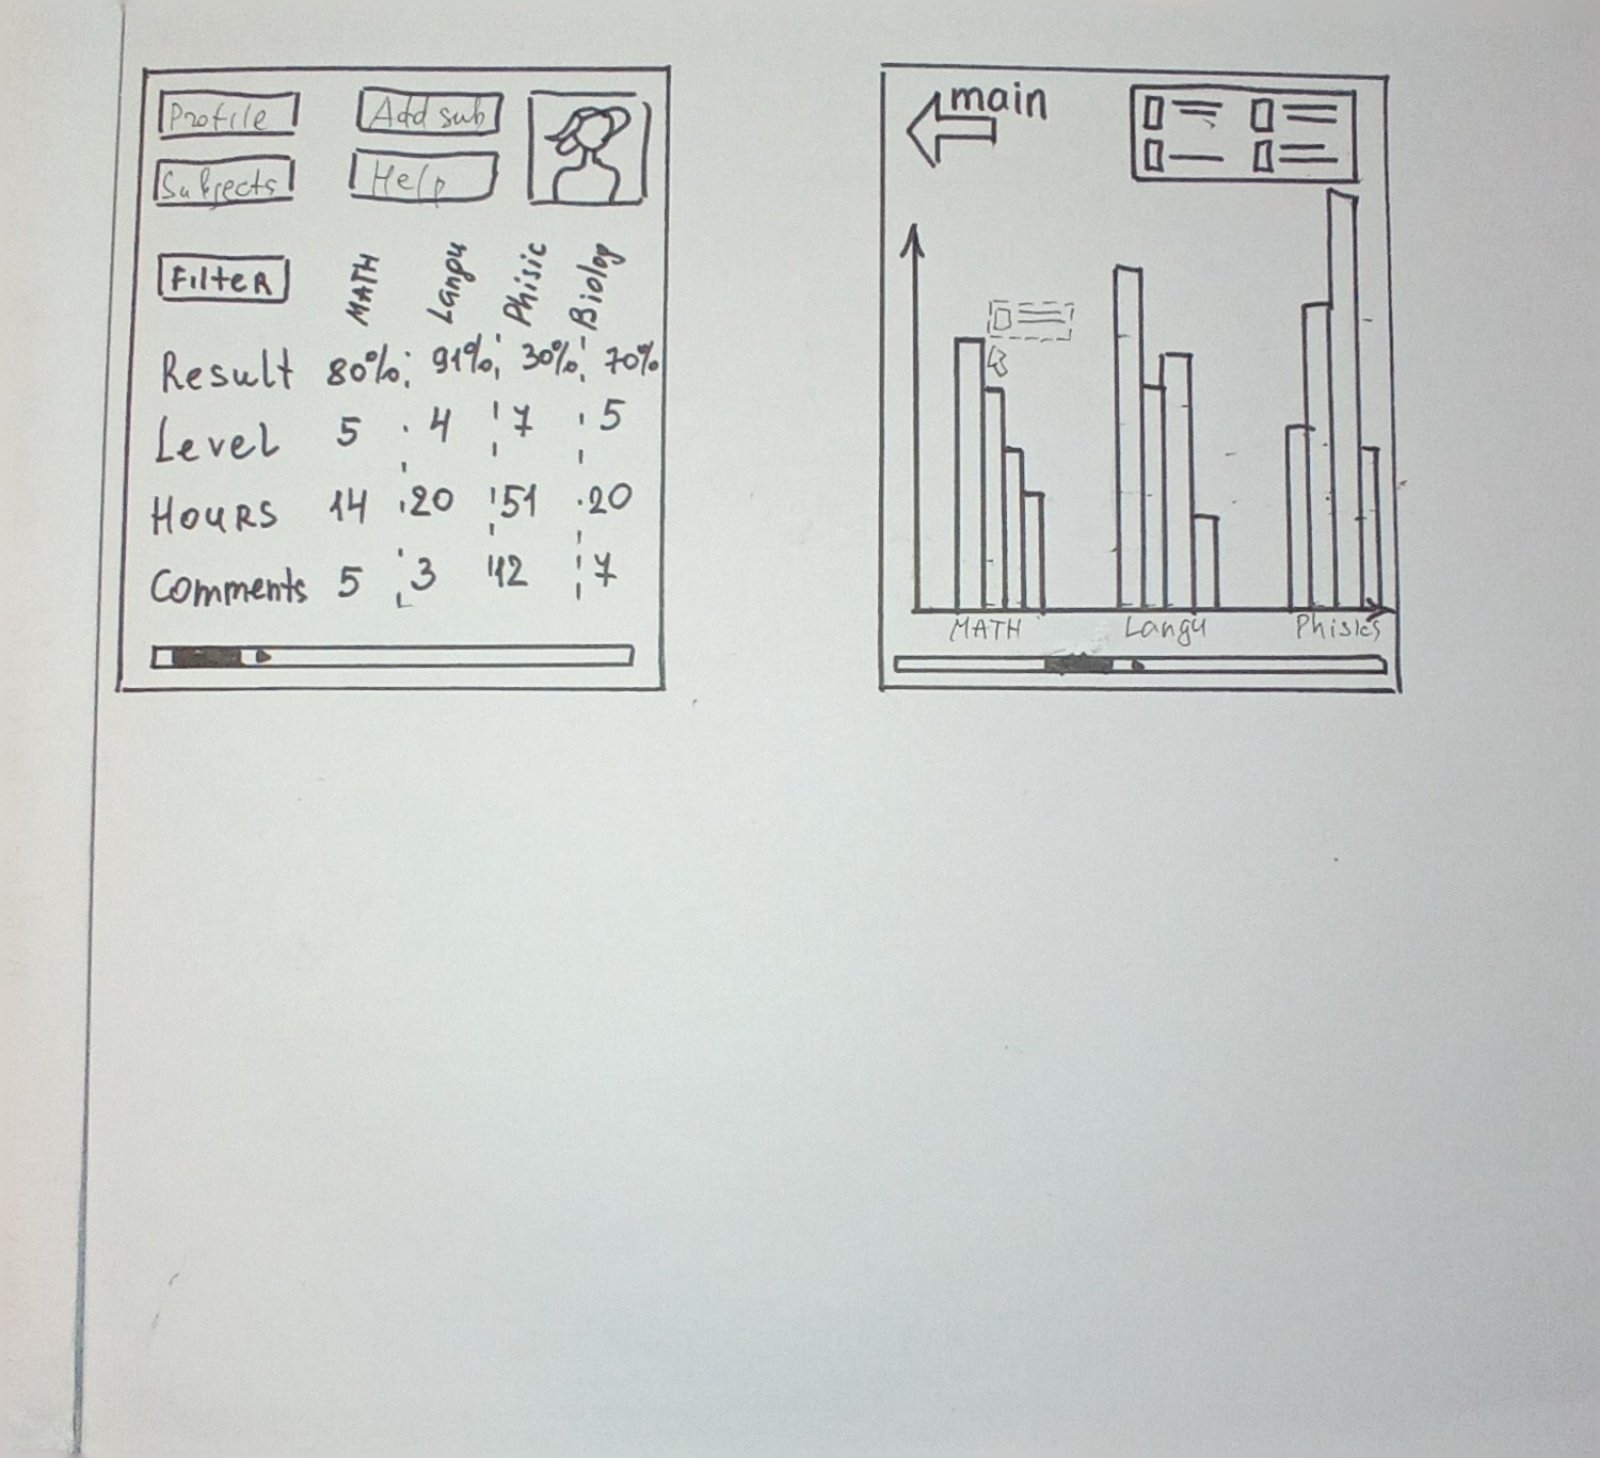 Profile Add sub
Subjects Help
Filter MATH Langu Phisic Biolog
Result 80% 91% 30% 70%
Level 5 4 7 5
Hours 14 20 51 20
Comments 5 3 12 7
main
MATH Langu Phisics